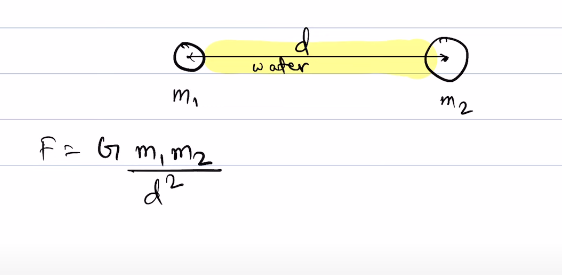 d
water
m₁ m₂
F = G m₁ m₂
d²